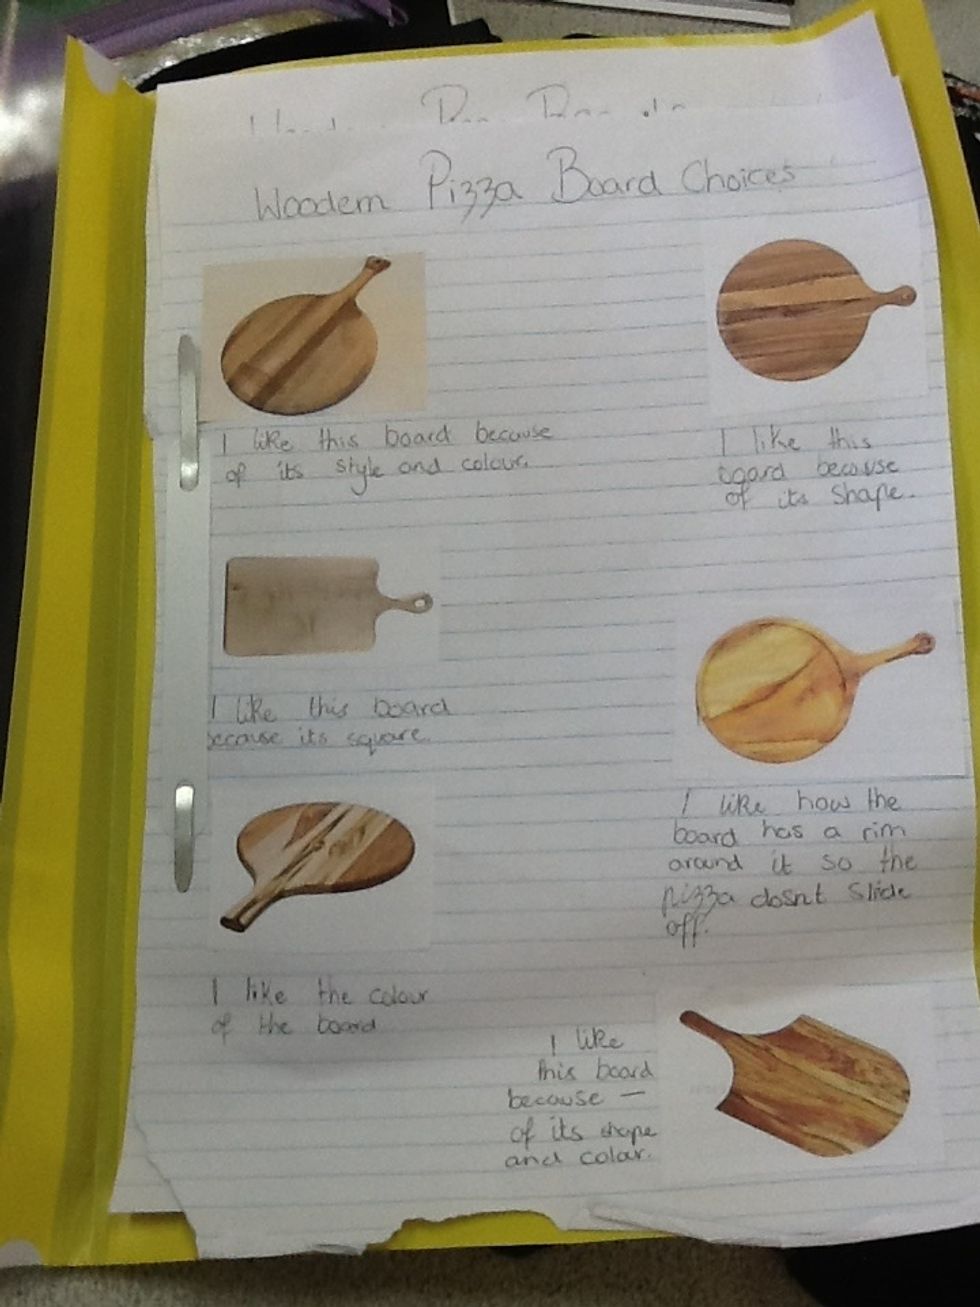 Woodem Pizza Board Choices
I like this board because
of its style and colour.
I like this
board because
of its shape.
I like this board
because its square.
I like how the
board has a rim
around it so the
pizza dosnt slide
off.
I like the colour
of the board
I like
this board
because —
of its shape
and colar.